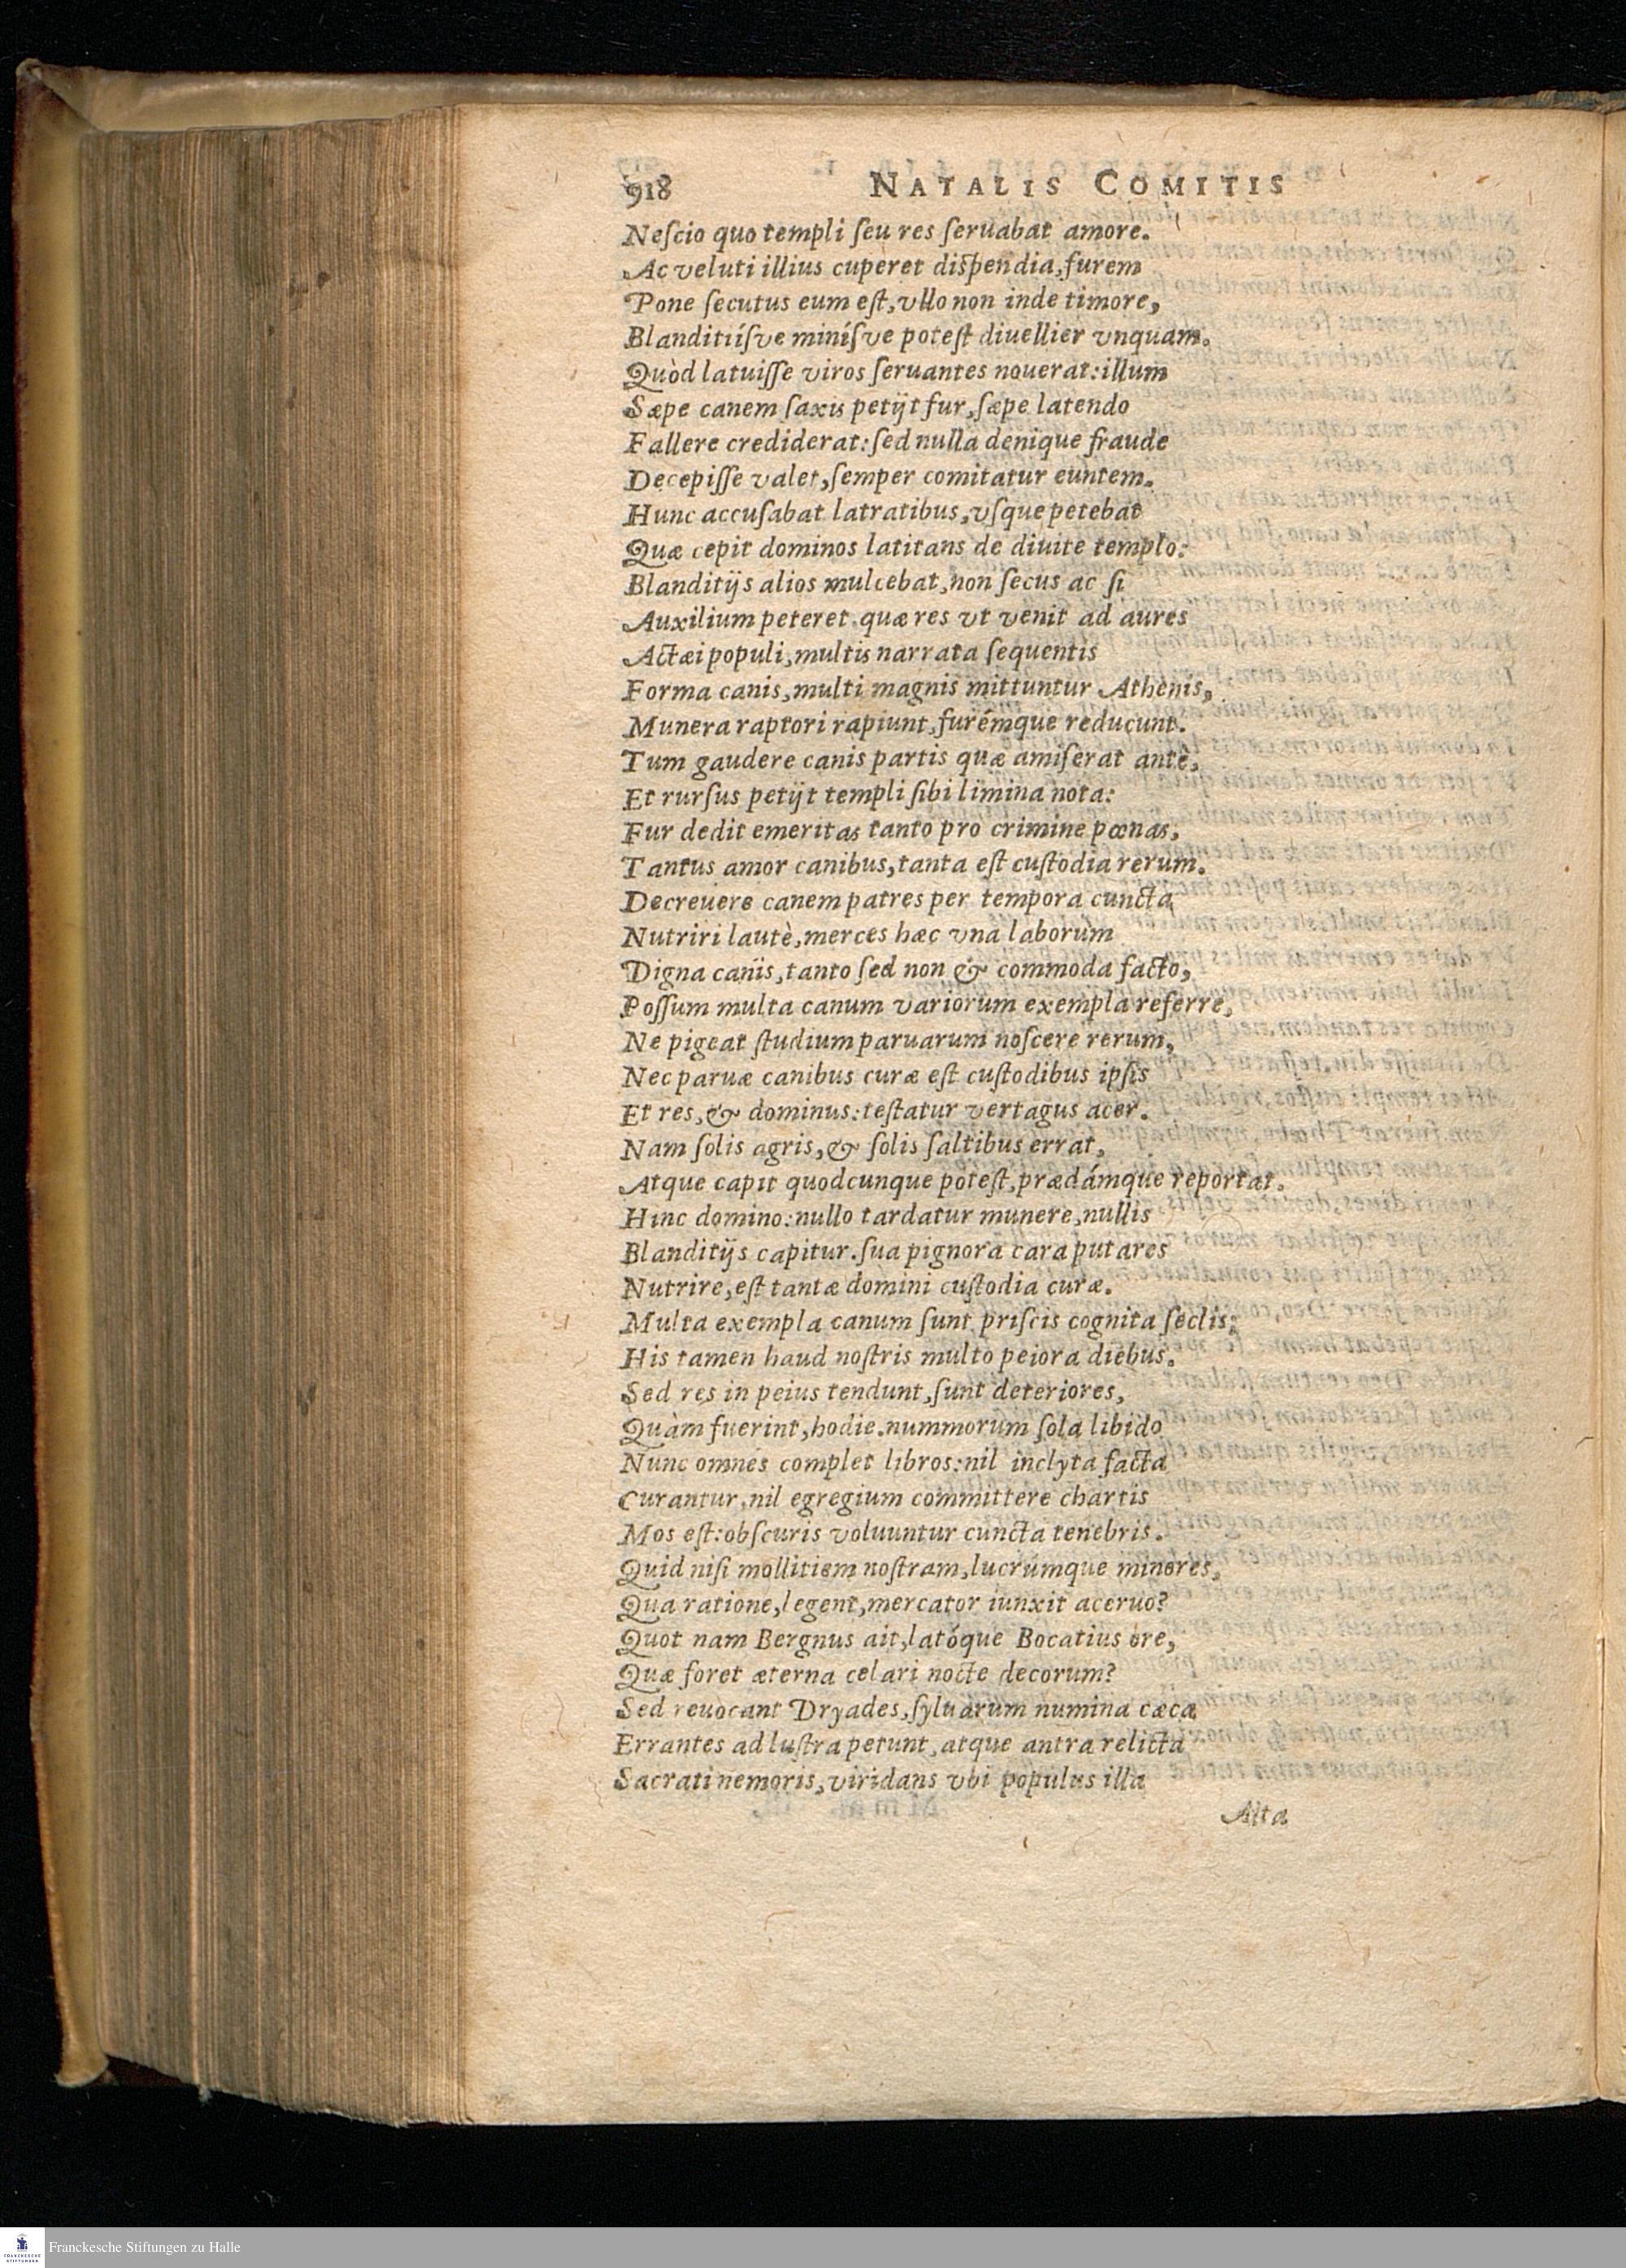 918 NATALIS COMITIS
Neſcio quo templi ſeu res ſeruabat amore.
Ac veluti illius cuperet diſpendia, furem
Pone ſecutus eum eſt, vllo non inde timore,
Blanditiíſve miníſve poteſt diuellier vnquam.
Quòd latuiſſe viros ſeruantes nouerat: illum
Sæpe canem ſaxis petijt fur, ſæpe latendo
Fallere crediderat: ſed nulla denique fraude
Decepiſſe valet, ſemper comitatur euntem.
Hunc accuſabat latratibus, vſque petebat
Quæ cepit dominos latitans de diuite templo:
Blanditijs alios mulcebat, non ſecus ac ſi
Auxilium peteret. quæ res vt venit ad aures
Actæi populi, multis narrata ſequentis
Forma canis, multi magnis mittuntur Athenis,
Munera raptori rapiunt, furémque reducunt.
Tum gaudere canis partis quæ amiſerat antè,
Et rurſus petijt templi ſibi limina nota:
Fur dedit emeritas tanto pro crimine pœnas,
Tantus amor canibus, tanta eſt cuſtodia rerum.
Decreuere canem patres per tempora cuncta
Nutriri lautè, merces hæc vna laborum
Digna canis, tanto ſed non & commoda facto,
Poſſum multa canum variorum exempla referre,
Ne pigeat ſtudium paruarum noſcere rerum,
Nec paruæ canibus curæ eſt cuſtodibus ipſis
Et res, & dominus: teſtatur vertagus acer.
Nam ſolis agris, & ſolis ſaltibus errat,
Atque capit quodcunque poteſt, prædámque reportat.
Hinc domino: nullo tardatur munere, nullis
Blanditijs capitur. ſua pignora cara putares
Nutrire, eſt tantæ domini cuſtodia curæ.
Multa exempla canum ſunt priſcis cognita ſeclis:
His tamen haud noſtris multo peiora diebus.
Sed res in peius tendunt, ſunt deteriores,
Quàm fuerint, hodie. nummorum ſola libido
Nunc omnes complet libros: nil inclyta facta
Curantur, nil egregium committere chartis
Mos eſt: obſcuris voluuntur cuncta tenebris.
Quid niſi mollitiem noſtram, lucrúmque minores,
Qua ratione, legent, mercator iunxit aceruo?
Quot nam Bergnus ait, latóque Bocatius ore,
Quæ foret æterna celari nocte decorum?
Sed reuocant Dryades, ſyluarum numina cæca
Errantes ad luſtra petunt, atque antra relicta
Sacrati nemoris, viridans vbi populus illa
Alta
Franckesche Stiftungen zu Halle